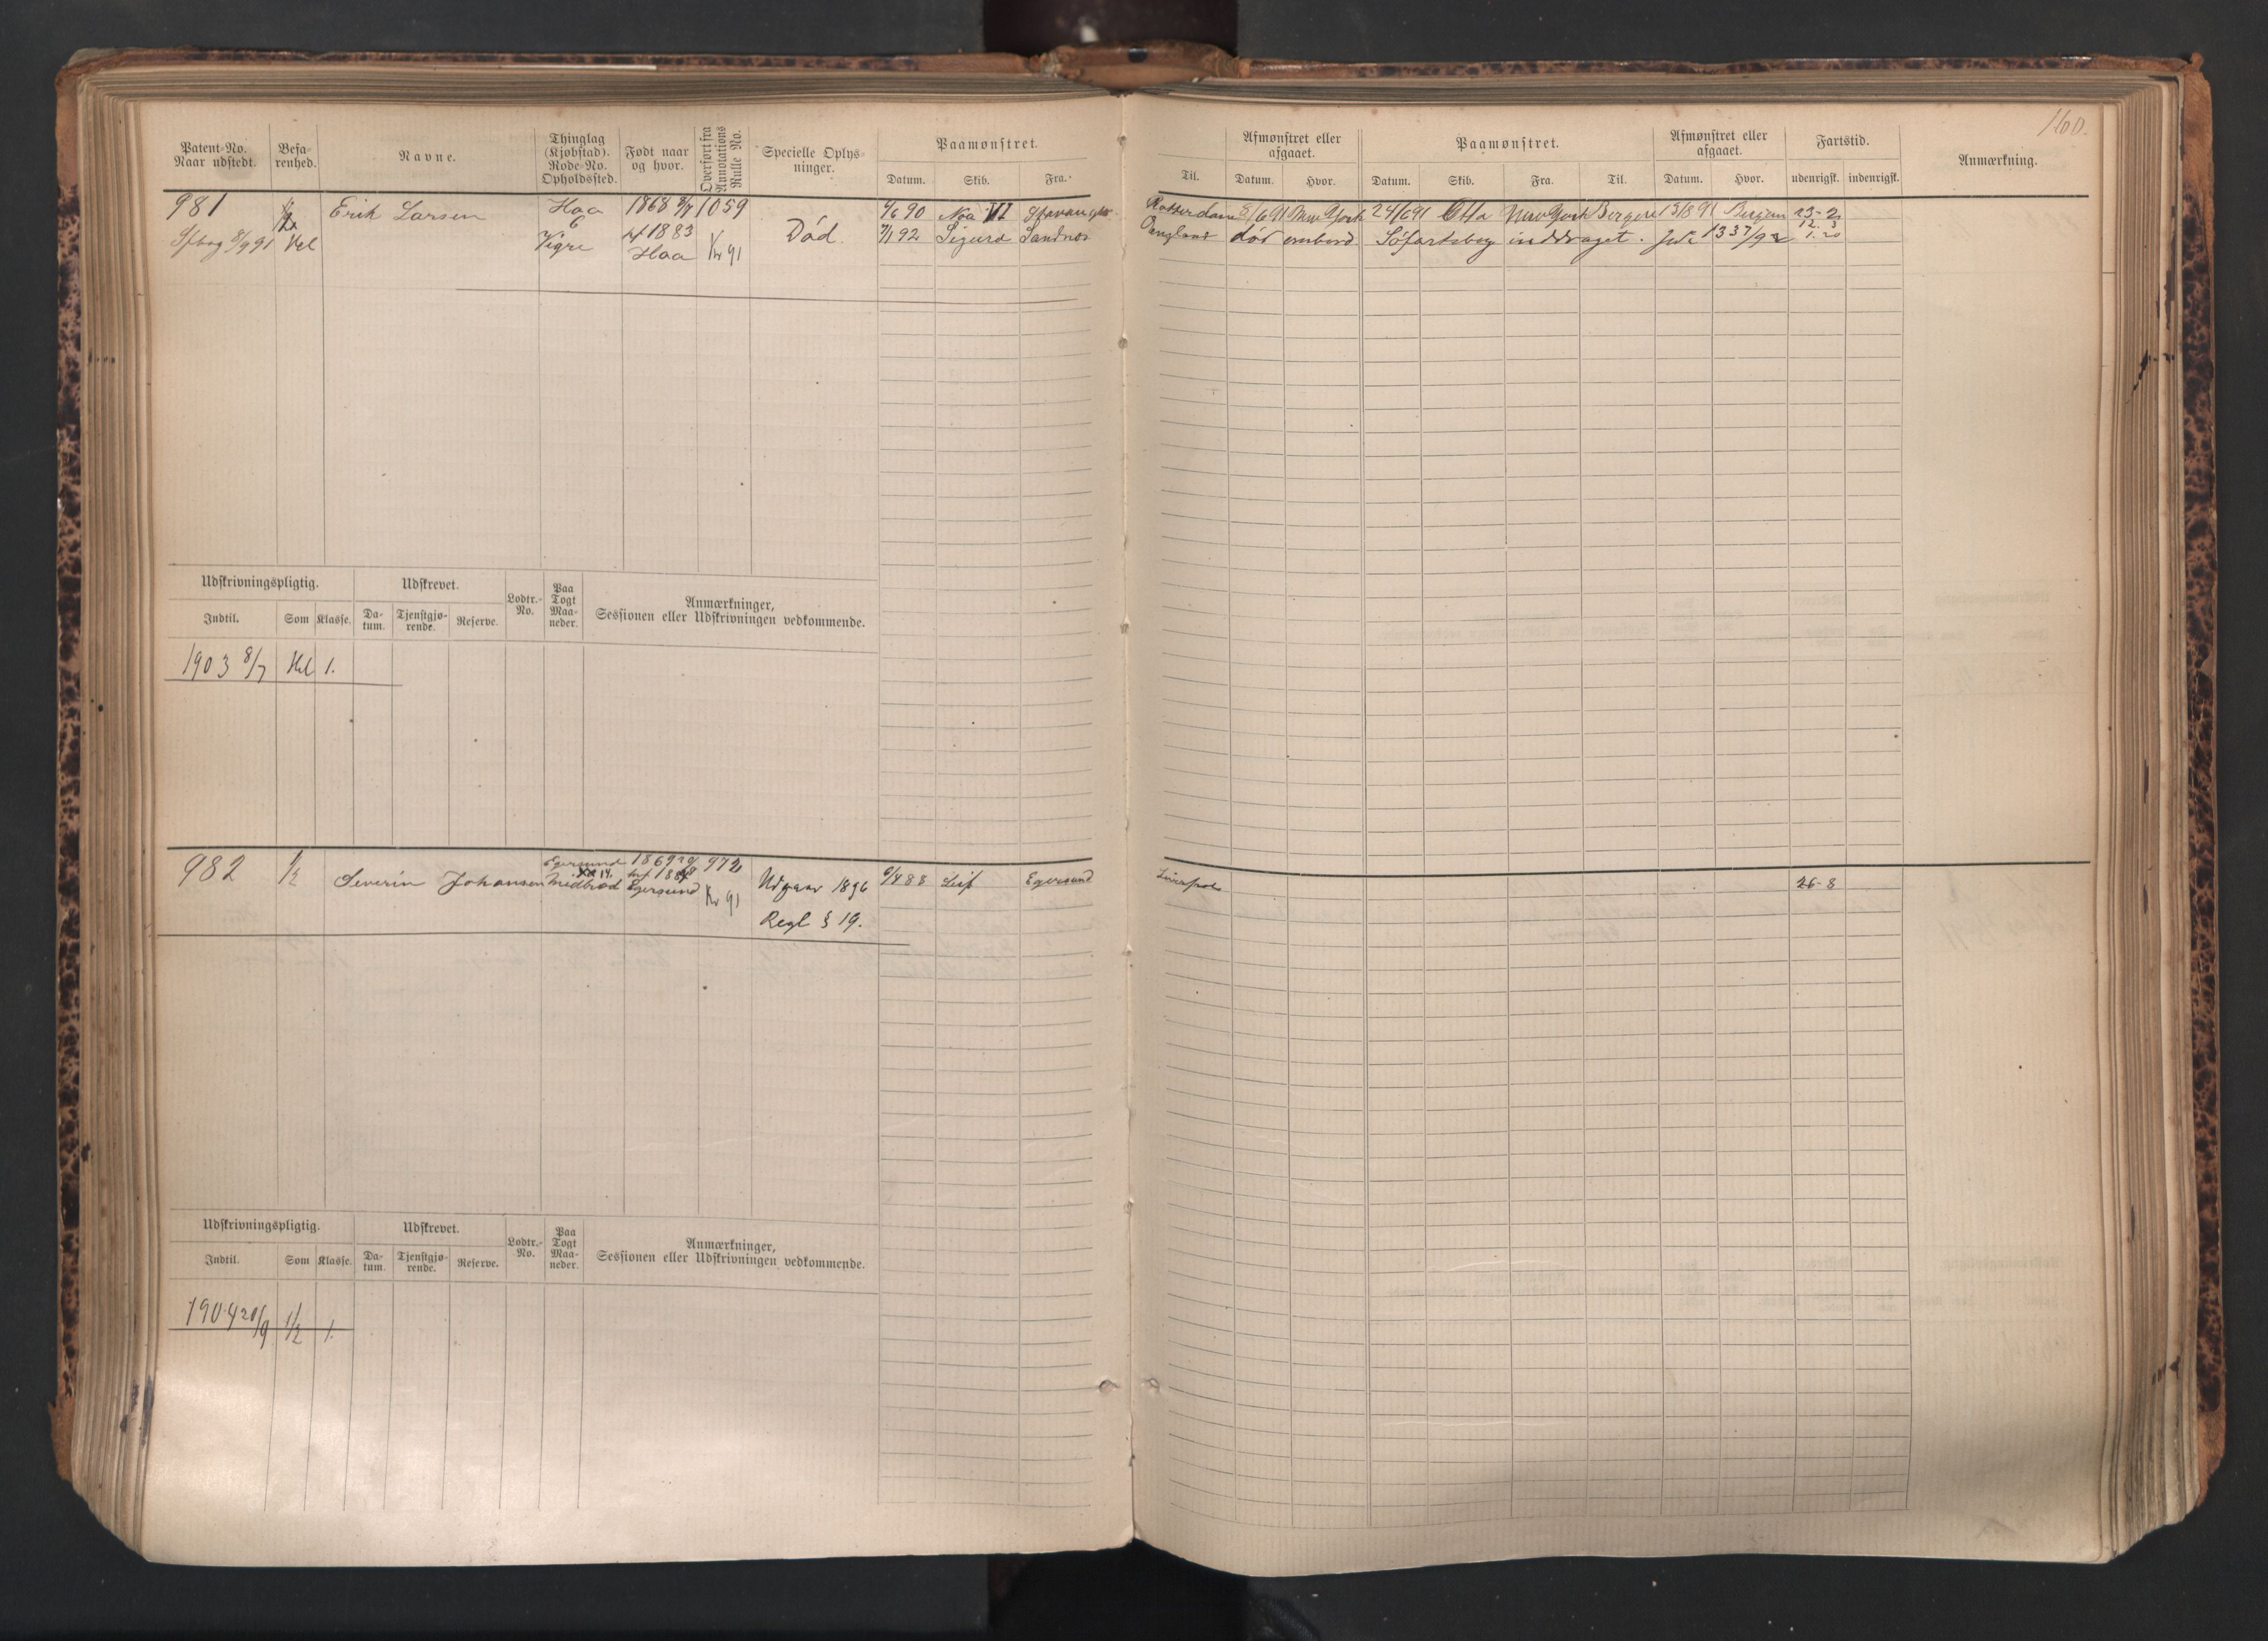 160.
Patent-No. Naar udstedt.
Befarenhed.
Navne.
Thinglag (Kjøbstad). Rode-No. Opholdssted.
Født naar og hvor.
Overført fra Annotations Rulle No.
Specielle Oplysninger.
Paamønstret.
Datum. Skib. Fra.
Til.
Afmønstret eller afgaaet.
Datum. Hvor.
Paamønstret.
Datum. Skib. Fra. Til.
Afmønstret eller afgaaet.
Datum. Hvor.
Fartstid.
udenrigsk. indenrigsk.
Anmærkning.
981 Erik Larsen Haa 1868 8/7 1059 4/6 90 Noa VII Stavanger Rotterdam 8/6 91 New York 24/6 91 Otta New York Bergen 13/8 91 Bergen 23-2
6
Sfbog 8/9 91 Hel Vigre kf 1883 Død. 7/1 92 Sigurd Sandnes England død ombord. Søfartsbog inddraget. 1337/92 12. 3
Haa Kr 91 1. 20
Udskrivningspligtig. Udskrevet. Lodtr.-No. Paa Togt Maaneder. Anmærkninger, Sessionen eller Udskrivningen vedkommende.
Indtil. Som Klasse. Datum. Tjenstgjørende. Reserve.
1903 8/7 Hel 1.
982 1/2 Severin Johansen Egersund 1869 972 88 Leif Egersund Liverpool 26-8
14.
Midbrod Egersund Kr 91 Udgaar 1896
Regl § 19.
Udskrivningspligtig. Udskrevet. Lodtr.-No. Paa Togt Maaneder. Anmærkninger, Sessionen eller Udskrivningen vedkommende.
Indtil. Som Klasse. Datum. Tjenstgjørende. Reserve.
1904 20/9 1/2 1.